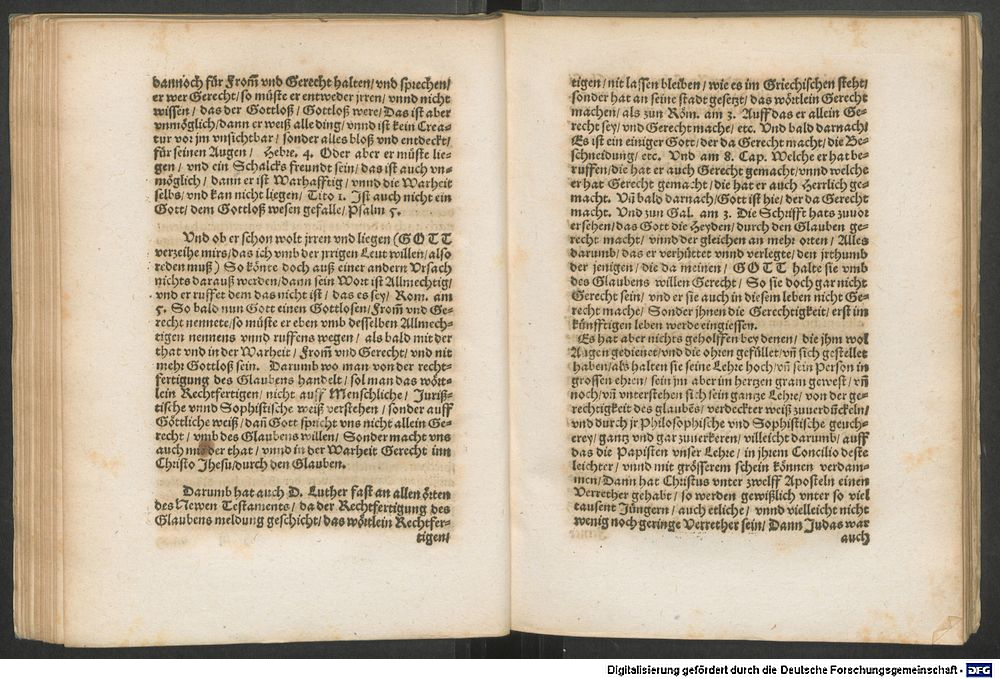 dannoch für From̃ vnd Gerecht halten/ vnd sprechen/
er wer Gerecht/ so müste er entweder jrren/ vnnd nicht
wissen/ das der Gottloß/ Gottloß were/ Das ist aber
vnmöglich/ dann er weiß alle ding/ vnnd ist kein Crea-
tur vor jm vnsichtbar/ sonder alles bloß vnd entdeckt/
für seinen Augen/ Hebre. 4. Oder aber er müste lie-
gen/ vnd ein Schalcks freundt sein/ das ist auch vn-
möglich/ dann er ist Warhafftig/ vnnd die Warheit
selbs/ vnd kan nicht liegen/ Tito 1. Ist auch nicht ein
Gott/ dem Gottloß wesen gefalle/ Psalm 5.
Vnd ob er schon wolt jrren vnd liegen (GOTT
verzeihe mirs/ das ich vmb der jrrigen Leut willen/ also
reden muß) So könte doch auß einer andern Vrsach
nichts darauß werden/ dann sein Wort ist Allmechtig/
vnd er ruffet dem das nicht ist/ das es sey/ Rom. am
5. So bald nun Gott einen Gottlosen/ From̃ vnd Ge-
recht nennete/ so müste er eben vmb desselben Allmech-
tigen nennens vnnd ruffens wegen/ als bald mit der
that vnd in der Warheit/ From̃ vnd Gerecht/ vnd nit
mehr Gottloß sein. Darumb wo man von der recht-
fertigung des Glaubens handelt/ sol man das wört-
lein Rechtfertigen/ nicht auff Menschliche/ Juriß-
tische vnnd Sophistische weiß verstehen/ sonder auff
Göttliche weiß/ dañ Gott spricht vns nicht allein Ge-
recht/ vmb des Glaubens willen/ Sonder macht vns
auch mit der that/ vnnd in der Warheit Gerecht inn
Christo Jhesu/ durch den Glauben.
Darumb hat auch D. Luther fast an allen örten
des Newen Testaments/ da der Rechtfertigung des
Glaubens meldung geschicht/ das wörtlein Rechtfer-
tigen/
tigen/ nit lassen bleiben/ wie es im Griechischen steht/
sonder hat an seine stadt gesetzt/ das wörtlein Gerecht
machen/ als zun Röm. am 3. Auff das er allein Ge-
recht sey/ vnd Gerecht mache/ etc. Vnd bald darnach/
Es ist ein einiger Gott/ der da Gerecht macht/ die Be-
schneidung/ etc. Vnd am 8. Cap. Welche er hat be-
ruffen/ die hat er auch Gerecht gemacht/ vnnd welche
er hat Gerecht gemacht/ die hat er auch Herrlich ge-
macht. Vñ bald darnach/ Gott ist hie/ der da Gerecht
macht. Vnd zun Gal. am 3. Die Schrifft hats zuuor
ersehen/ das Gott die Heyden/ durch den Glauben ge-
recht macht/ vnnd der gleichen an mehr orten/ Alles
darumb/ das er verhüttet vnnd verlegte/ den jrthumb
der jenigen/ die da meinen/ GOTT halte sie vmb
des Glaubens willen Gerecht/ So sie doch gar nicht
Gerecht sein/ vnd er sie auch in diesem leben nicht Ge-
recht mache/ Sonder jhnen die Gerechtigkeit/ erst im
künfftigen leben werde eingiessen.
Es hat aber nichts geholffen bey denen/ die jhm wol
Augen gedienet/ vnd die ohren gefüllet/ vñ sich gestellet
haben/ als halten sie seine Lehre hoch/ vñ sein Person in
grossen ehren/ sein jm aber im hertzen gram gewest/ vñ
noch/ vñ vnterstehen sich sein gantze Lehre/ von der ge-
rechtigkeit des glaubēs/ verdeckter weiß zuuerdückeln/
vnd durch jr Philosophische vnd Sophistische geuch-
erey/ gantz vnd gar zuuerkeren/ villeicht darumb/ auff
das die Papisten vnser Lehre/ in jhrem Concilio deste
leichter/ vnnd mit grösserem schein können verdam-
men/ Dann hat Christus vnter zwelff Aposteln einen
Verrether gehabt/ so werden gewißlich vnter so viel
tausent Jüngern/ auch etliche/ vnnd vielleicht nicht
wenig noch geringe Verrether sein/ Dann Judas war
auch
Digitalisierung gefördert durch die Deutsche Forschungsgemeinschaft - DFG